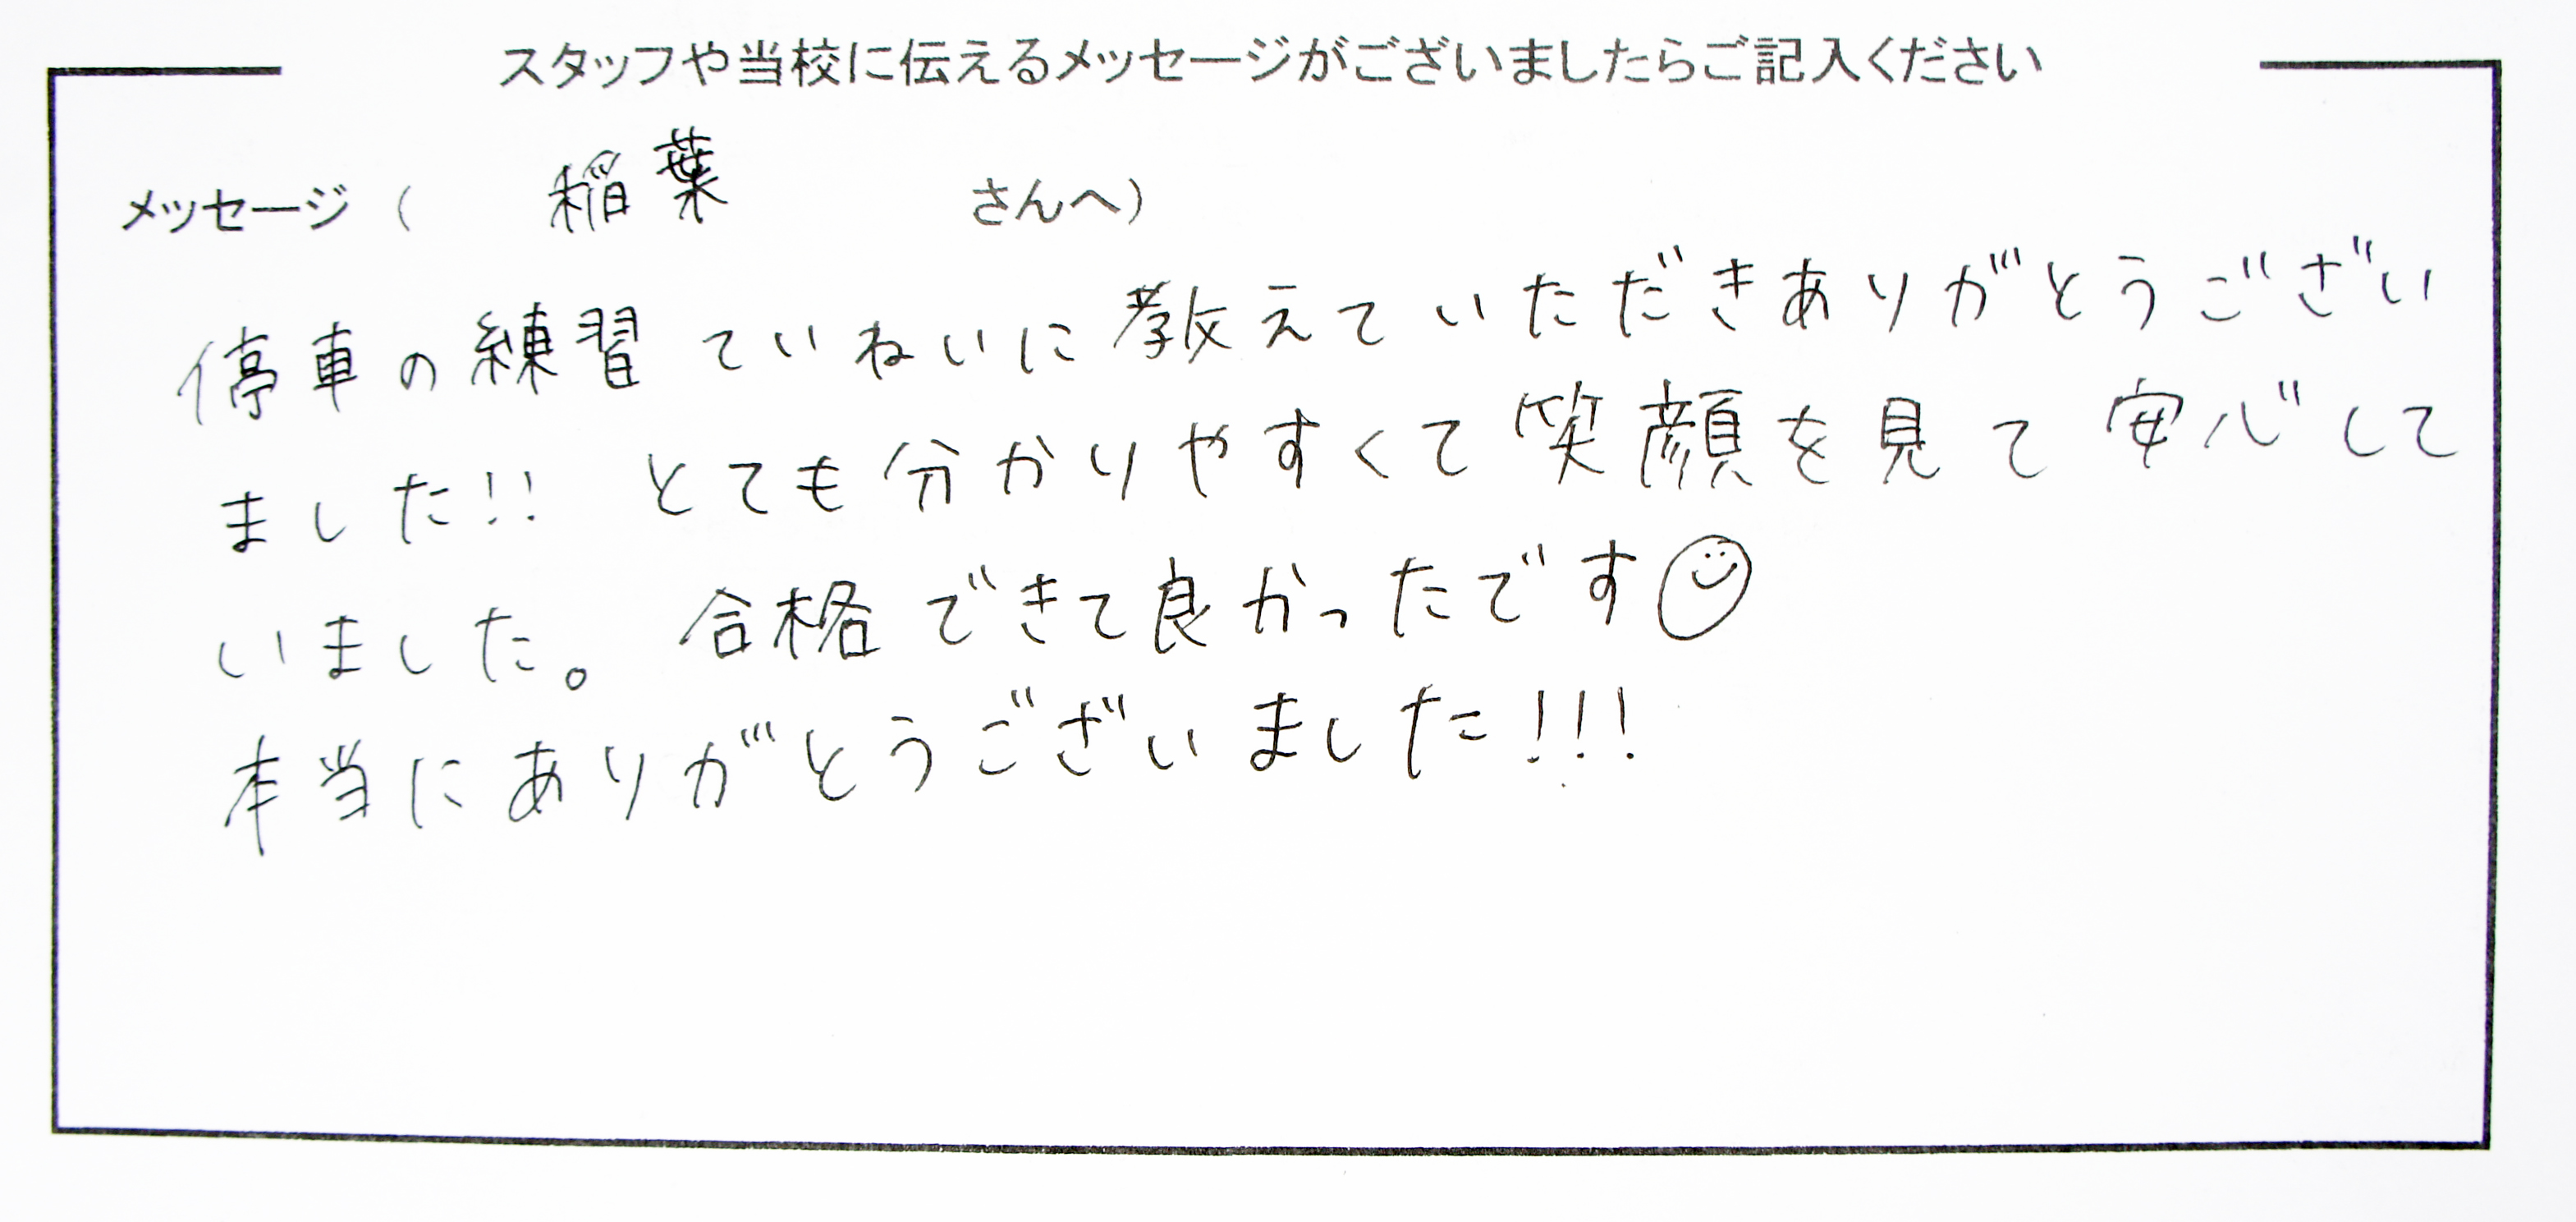 スタッフや当校に伝えるメッセージがございましたらご記入ください
メッセージ（ 稲葉 さんへ）
停車の練習ていねいに教えていただきありがとうござい
ました!! とても分かりやすくて笑顔を見て安心して
いました。 合格できて良かったです☺
本当にありがとうございました!!!